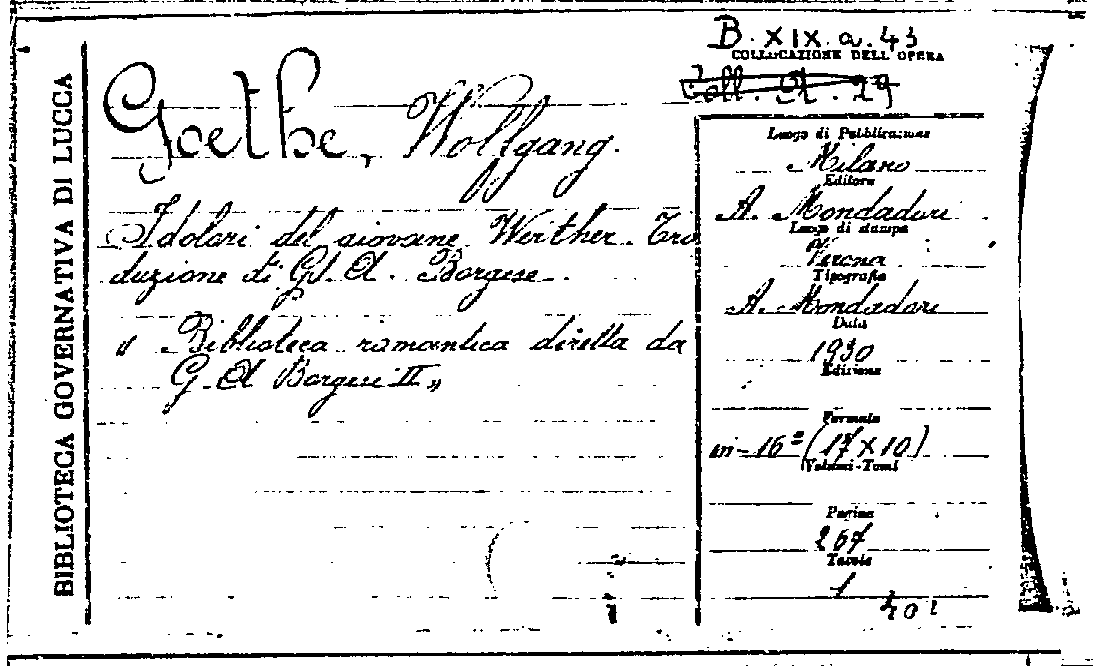 BIBLIOTECA GOVERNATIVA DI LUCCA
B. XIX. a. 43
COLLOCAZIONE DELL'OPERA
Coll. A. 29
Goethe, Wolfgang.
I dolori del giovane Werther. Tra
duzione di G. A. Borgese.
"Biblioteca romantica diretta da
G. A Borgese II"
Luogo di Pubblicazione
Milano
Editore
A. Mondadori
Luogo di stampa
Verona
Tipografia
A. Mondadori
Data
1930
Edizione
Formato
in-16º (17x10)
Volumi-Tomi
Pagine
267
Tavole
1